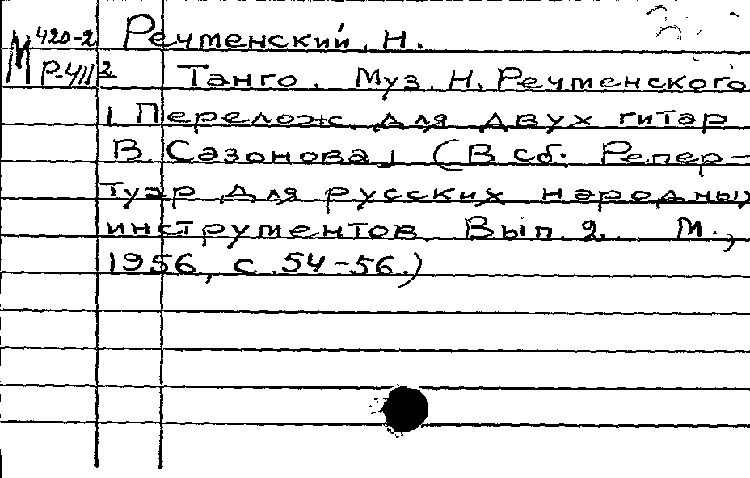 М 420-2 Речменский, Н.
Р-411 2 Танго. Муз. Н. Речменского
1 Перелож. для двух гитар
В. Сазонова 1 (В сб. Репер-
туар для русских народных
инструментов. Вып. 2. М.,
1956, с. 54-56.)